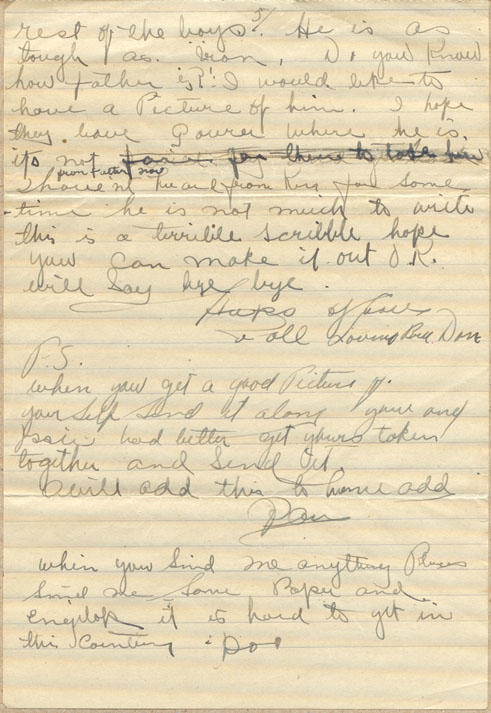 5/
rest of the boys. He is as
tough as Iron, Do you Know
how father is?! I would like to
have a Picture of him. I hope
they have Power where he is.
its not fair for them to take him
from Father now
I havent heard from Roy for some
time he is not much to write
this is a terrible scribble hope
youw can make it out O.K.
will Say bye bye.
of love
& all Loving Bro. Don
P.S.
when youw get a good Picture of
your Self Send it along youw and
Essie had better get yours taken
together and Send it.
Will add this to home add
Don
when you Send me anything Please
Send me Some Paper and
Envelop it is hard to get in
this Country. Don